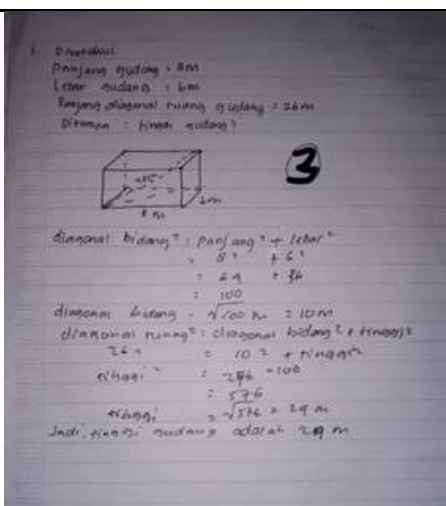 1 Diketahui
Panjang gudang = 8m
Lebar gudang = 6m
Panjang diagonal ruang gudang = 26m
Ditanya : tinggi gudang?
3
8 m
6m
diagonal bidang² : panjang² + lebar²
= 8² + 6²
= 64 + 36
= 100
diagonal bidang = √100 m = 10m
diagonal ruang² : diagonal bidang² + tinggi²
26² = 10² + tinggi²
tinggi² = -100
= 576
tinggi = √576 = 24 m
Jadi, tinggi gudang adalah 24 m